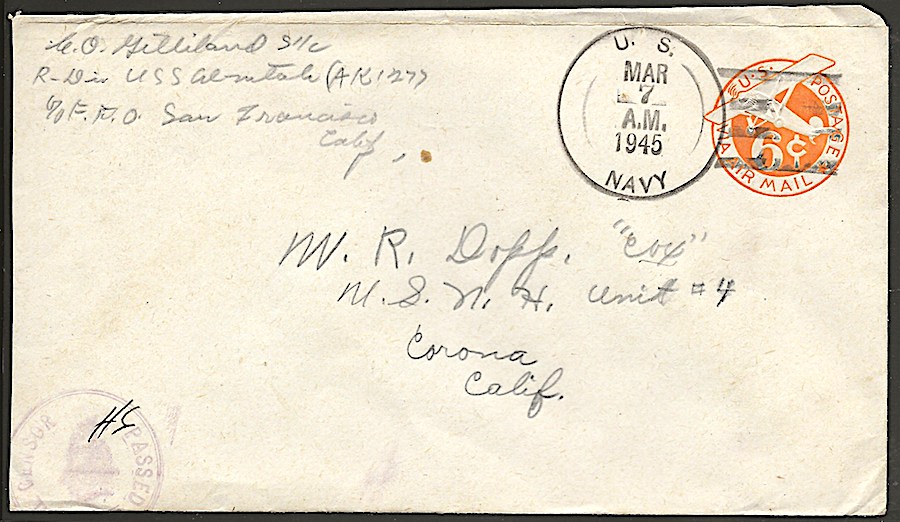 C. O. Gilliland S1/c
R-Div USS Alnitah (AK127)
c/o F.P.O. San Francisco
Calif,
U. S.
MAR
7
A.M.
1945
NAVY
U.S. POSTAGE
6¢
VIA AIR MAIL
W. R. Dopp. "Cox"
U. S. N. H. Unit #4
Corona
Calif.
PASSED
CENSOR
HS